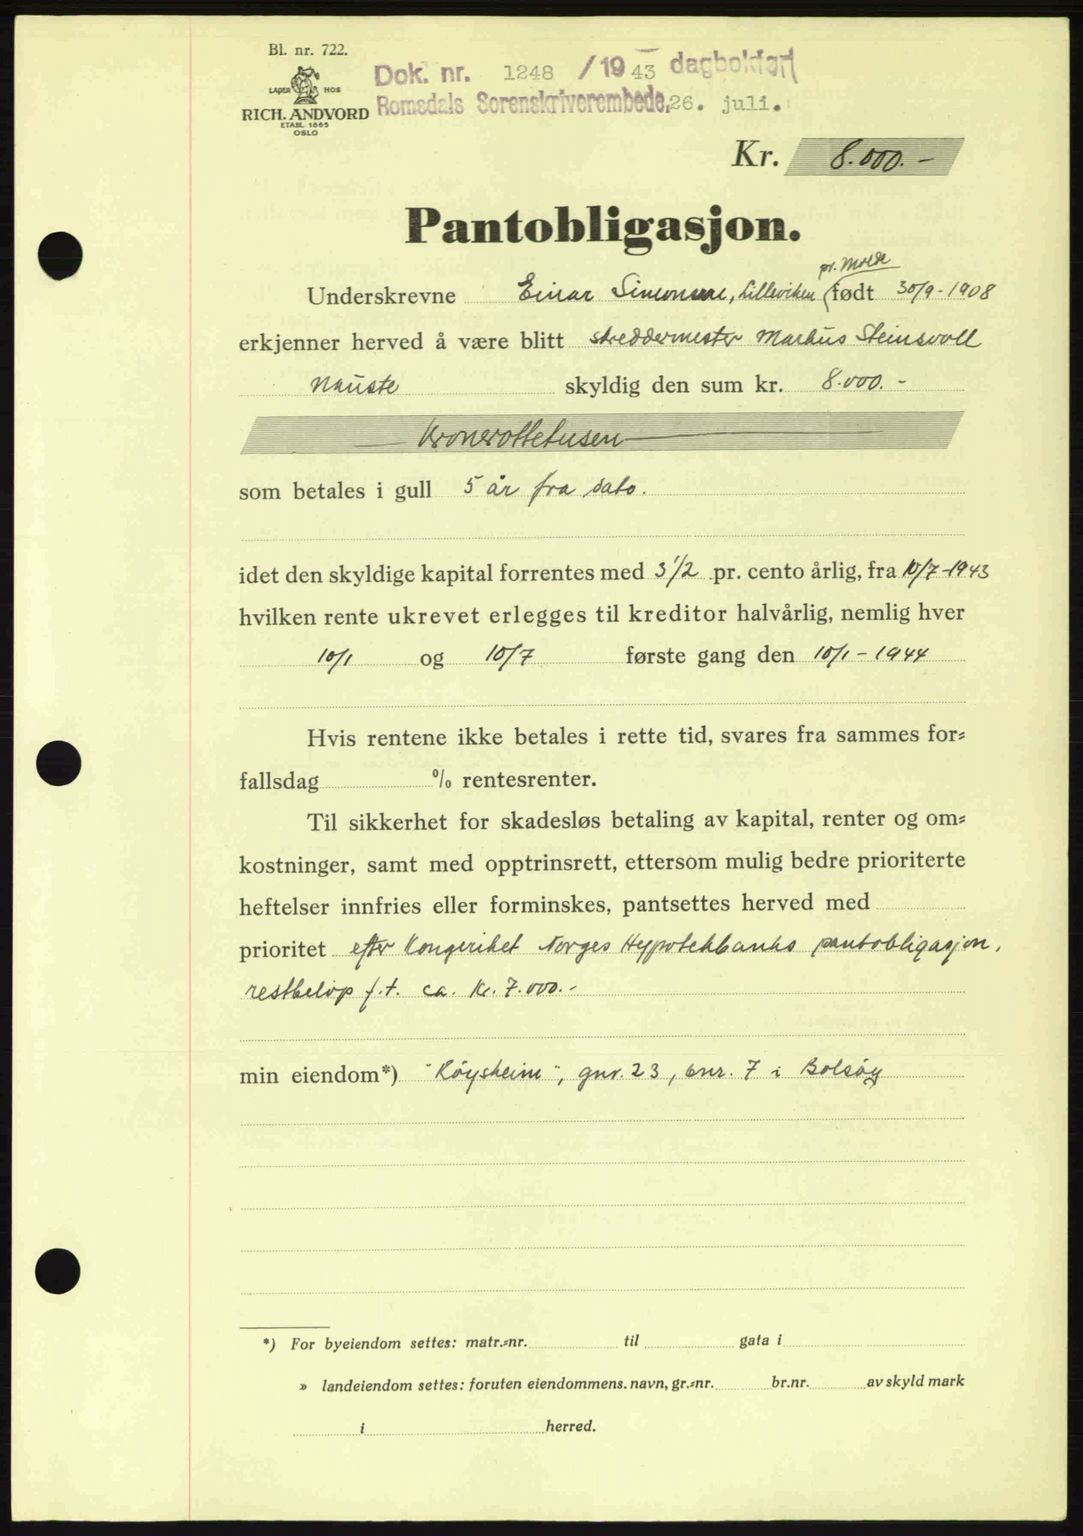 Bl. nr. 722.
LAGER HOS
RICH. ANDVORD
ETABL. 1865
OSLO
Dok. nr. 1248 / 1943 dagbokført
Romsdals Sorenskriverembede, 26. juli.
Kr. 8.000.-
Pantobligasjon.
pr. Molde
Underskrevne Einar Simonsen, Lilleviken født 30/9-1908
erkjenner herved å være blitt skreddermester Markus Steinsvoll
Nauste skyldig den sum kr. 8.000.-
Kronerottetusen
som betales i gull 5 år fra dato.
idet den skyldige kapital forrentes med 3 1/2 pr. cento årlig, fra 10/7-1943
hvilken rente ukrevet erlegges til kreditor halvårlig, nemlig hver
10/1 og 10/7 første gang den 10/1-1944
Hvis rentene ikke betales i rette tid, svares fra sammes for=
fallsdag % rentesrenter.
Til sikkerhet for skadesløs betaling av kapital, renter og om=
kostninger, samt med opptrinsrett, ettersom mulig bedre prioriterte
heftelser innfries eller forminskes, pantsettes herved med
prioritet efter Kongeriket Norges Hypotekbanks pantobligasjon,
restbeløp f.t. ca. kr. 7.000.-
min eiendom*) "Röysheim", gnr. 23, bnr. 7 i Bolsöy
*) For byeiendom settes: matr.=nr. til gata i
» landeiendom settes: foruten eiendommens. navn, gr.=nr. br.nr. av skyld mark
i herred.